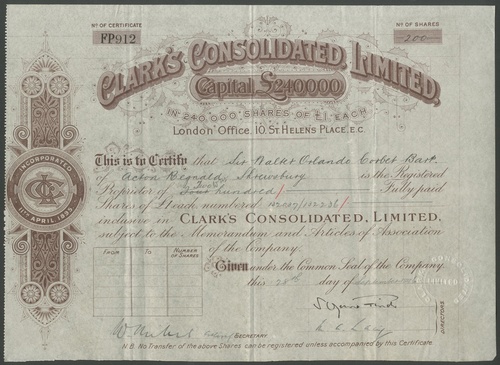 No OF CERTIFICATE
FP912
No OF SHARES
200
CLARK'S CONSOLIDATED LIMITED,
Capital £240000
IN 240,000 SHARES OF £1 EACH
LONDON OFFICE, 10, ST HELENS PLACE, E.C.
This is to Certify that Sir Walter Orlando Corbet Bart.
Acton Reynald Shrewsbury is the Registered
Proprietor of Two hundred Fully paid
Shares of £1 each numbered
inclusive in CLARK'S CONSOLIDATED, LIMITED,
subject to the Memorandum and Articles of Association
of the Company.
FROM TO NUMBER OF SHARES
Given under the Common Seal of the Company
this 28th day of
INCORPORATED
11TH APRIL, 1895
SECRETARY
DIRECTORS
N.B. No Transfer of the above Shares can be registered unless accompanied by this Certificate